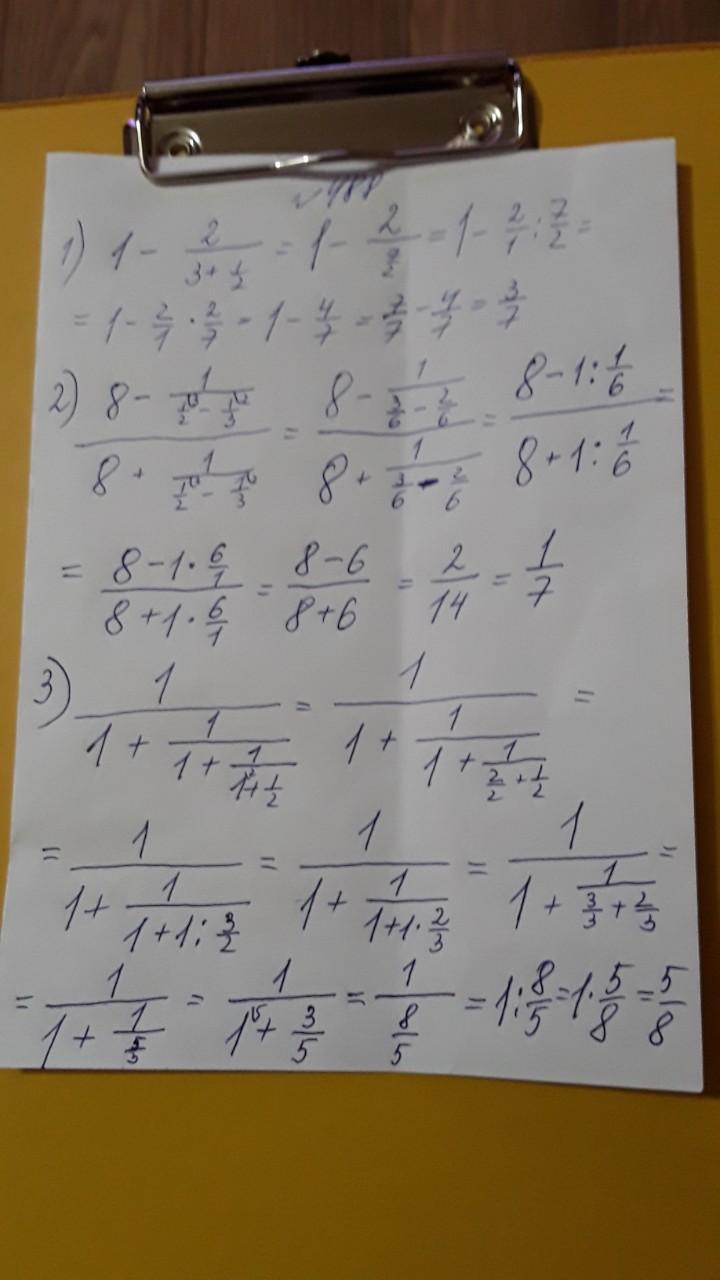 № 988
1) 1 - 2/(3 + 1/2) = 1 - 2/(7/2) = 1 - 2/1 : 7/2 =
= 1 - 2/1 · 2/7 = 1 - 4/7 = 7/7 - 4/7 = 3/7
2) (8 - 1/(1/2 - 1/3))/(8 + 1/(1/2 - 1/3)) = (8 - 1/(3/6 - 2/6))/(8 + 1/(3/6 - 2/6)) = (8 - 1 : 1/6)/(8 + 1 : 1/6) =
= (8 - 1 · 6/1)/(8 + 1 · 6/1) = (8 - 6)/(8 + 6) = 2/14 = 1/7
3) 1/(1 + 1/(1 + 1/(1 + 1/2))) = 1/(1 + 1/(1 + 1/(2/2 + 1/2))) =
= 1/(1 + 1/(1 + 1 : 3/2)) = 1/(1 + 1/(1 + 1 · 2/3)) = 1/(1 + 1/(3/3 + 2/3)) =
= 1/(1 + 1/(5/3)) = 1/(1 + 3/5) = 1/(8/5) = 1 : 8/5 = 1 · 5/8 = 5/8